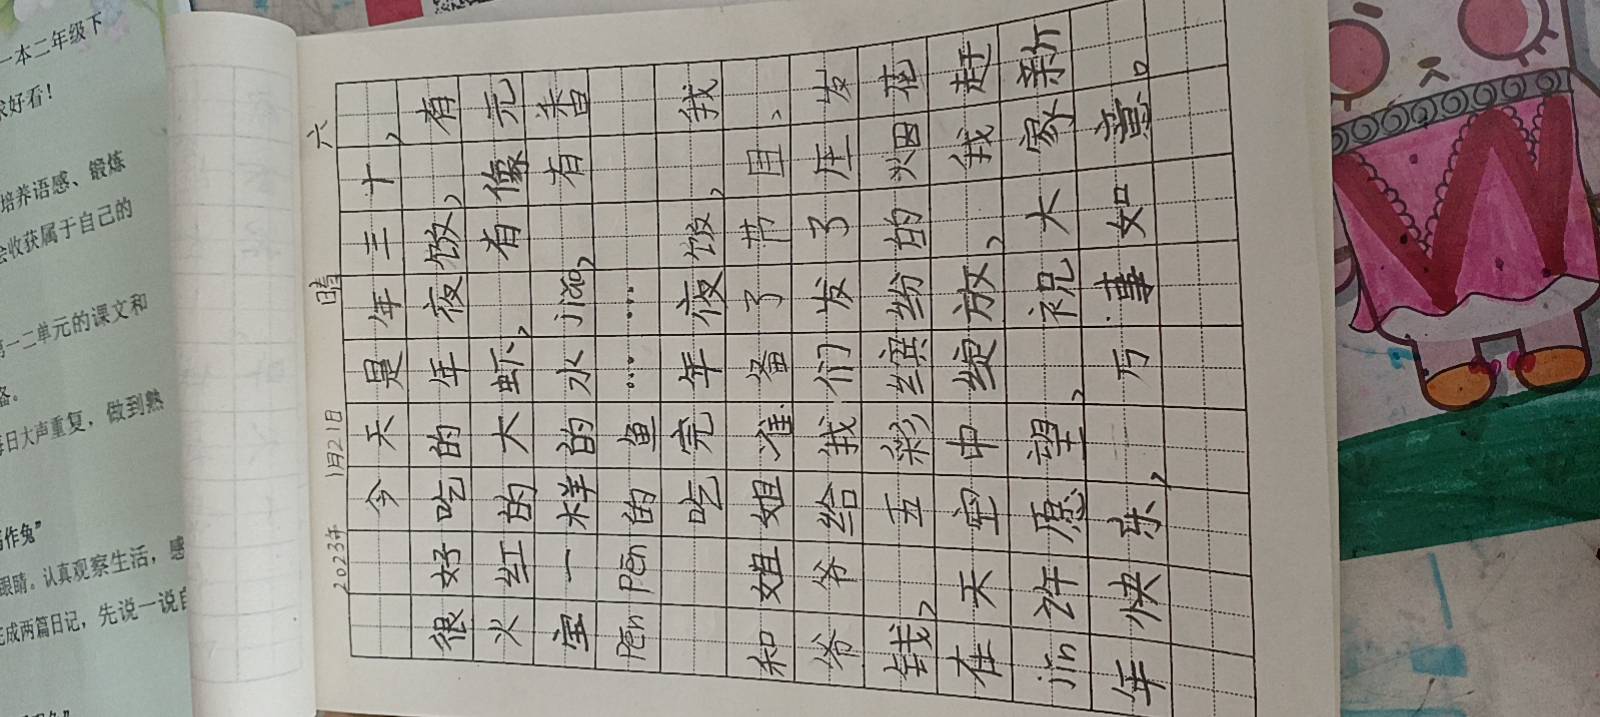 一本二年级下
好看！
培养语感、锻炼
会收获属于自己的
第一二单元的课文和
每日大声重复，做到熟
作兔”
眼睛。认真观察生活，感
完成两篇日记，先说一说自
2023年 1月21日 晴 六
今天是年三十，
很好吃的年夜饭，有
火红的大虾，有像元
宝一样的水jiǎo，有香
Pēn Pēn的鱼……
吃完年夜饭，我
和姐姐准备了带、
爷爷给我们发了压岁
钱，五彩缤纷的烟花
在天空中绽放，我赶
jǐn许愿望，祝大家新
年快乐，万事如意。